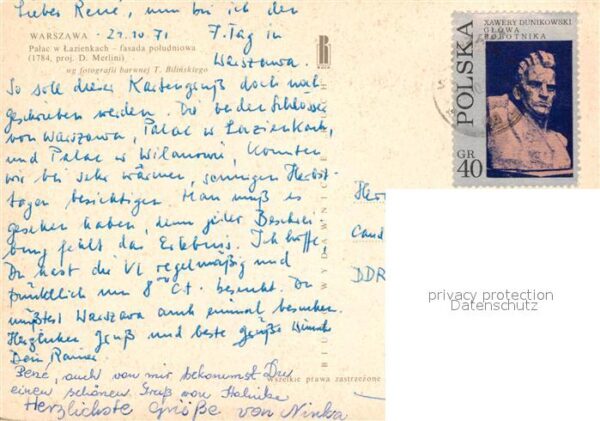 Lieber René, nun bin ich der
WARSZAWA - 22.10.71 7. Tag in
Pałac w Łazienkach – fasada południowa
(1784, proj. D. Merlini) Warszawa.
wg fotografii barwnej T. Bilińskiego
So soll dieser Kartengruß doch noch
geschrieben werden. Die beiden Schlösser
von Warszawa, Pałac w Łazienkach,
und Pałac w Wilanowi, konnten
wir bei sehr warmen, sonnigen Herbst-
tagen besichtigen. Man muß es
gesehen haben, denn jeder Beschrei-
bung fehlt das Erlebnis. Ich hoffe,
Du hast die VL regelmäßig und
pünktlich um 8 ct. besucht. Du
müßtest Warszawa auch einmal besuchen.
Herzlichen Gruß und beste Grüße
Dein Rainer
René, auch von mir bekommst Du
einen schönen Gruß von Halinka
Herzlichste Grüße von Ninka
Wszelkie prawa zastrzeżone
XAWERY DUNIKOWSKI
GŁOWA
ROBOTNIKA
POLSKA
GR
40
Herr
Cand
DDR
privacy protection
Datenschutz